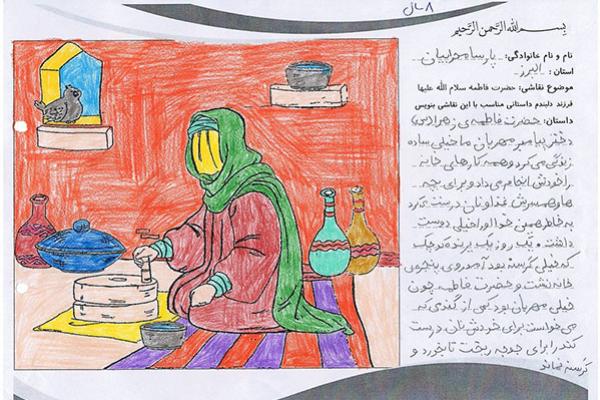 ۸ سال
بسم الله الرحمن الرحیم
نام و نام خانوادگی: پارسا
استان: البرز
موضوع نقاشی: حضرت فاطمه سلام الله علیها
فرزند دلبندم داستانی مناسب با این نقاشی بنویس
داستان: حضرت فاطمه‌ی زهرا(س)
دختر پیامبر مهربان ما خیلی ساده
زندگی می کرد و همه کارهای خانه
را خودش انجام می داد و برای بچه
ها و همسرش غذا و نان درست می کرد
به خاطر همین خدا او را خیلی دوست
داشت. یک روز یک پرنده کوچک
که خیلی گرسنه بود آمد روی پنجره‌ی
خانه نشست و حضرت فاطمه چون
خیلی مهربان بود کمی از گندمی که
می خواست برای خودش نان درست
کند را برای جوجه ریخت تا بخورد و
گرسنه نماند